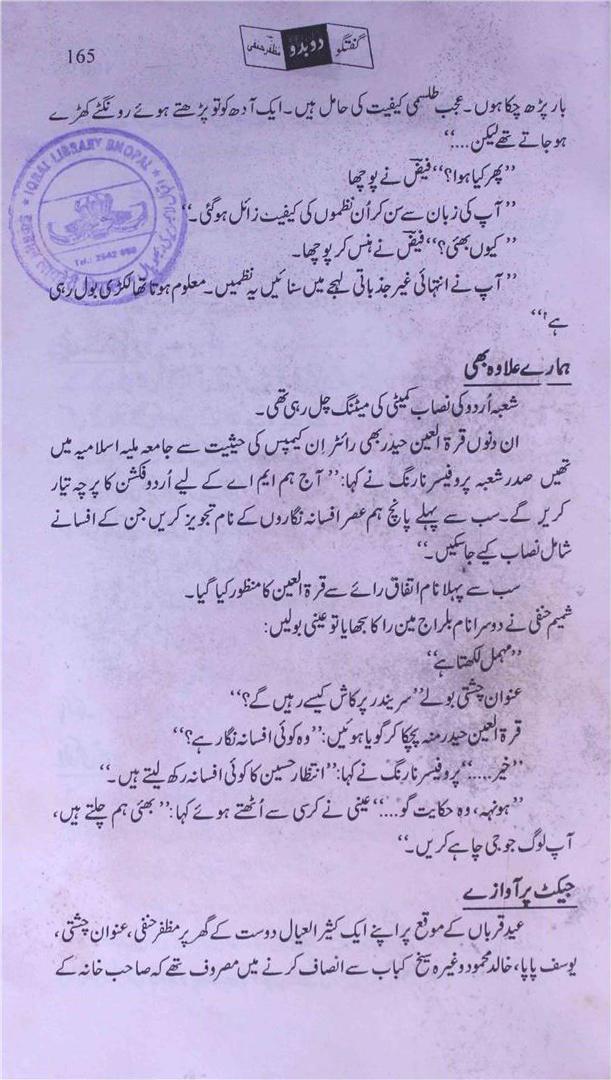 165
گفتگو دو بدو مظفر حنفی
بار پڑھ چکا ہوں۔ عجب طلسمی کیفیت کی حامل ہیں۔ ایک آدھ کو تو پڑھتے ہوئے رونگٹے کھڑے
ہو جاتے تھے لیکن....‘‘
’’پھر کیا ہوا؟‘‘ فیضؔ نے پوچھا
’’آپ کی زبان سے سن کر اُن نظموں کی کیفیت زائل ہو گئی۔‘‘
’’کیوں بھئی؟‘‘ فیضؔ نے ہنس کر پوچھا۔
’’آپ نے انتہائی غیر جذباتی لہجے میں سنائیں یہ نظمیں۔ معلوم ہوتا تھا لکڑی بول رہی
ہے!‘‘
ہمارے علاوہ بھی
شعبہ اُردو کی نصاب کمیٹی کی میٹنگ چل رہی تھی۔
ان دنوں قرۃ العین حیدر بھی رائٹر اِن کیمپس کی حیثیت سے جامعہ ملیہ اسلامیہ میں
تھیں صدر شعبہ پروفیسر نارنگ نے کہا: ’’آج ہم ایم اے کے لیے اُردو فکشن کا پرچہ تیار
کریں گے۔ سب سے پہلے پانچ ہم عصر افسانہ نگاروں کے نام تجویز کریں جن کے افسانے
شامل نصاب کیے جا سکیں۔‘‘
سب سے پہلا نام اتفاق رائے سے قرۃ العین کا منظور کیا گیا۔
شمیم حنفی نے دوسرا نام بلراج مین را کا سجھایا تو عینی بولیں:
’’مہمل لکھتا ہے‘‘
عنوان چشتی بولے ’’سریندر پرکاش کیسے رہیں گے؟‘‘
قرۃ العین حیدر منہ پچکا کر گویا ہوئیں: ’’وہ کوئی افسانہ نگار ہے؟‘‘
’’خیر.....‘‘ پروفیسر نارنگ نے کہا: ’’انتظار حسین کا کوئی افسانہ رکھ لیتے ہیں۔‘‘
’’ہونہہ، وہ حکایت گو....‘‘ عینی نے کرسی سے اُٹھتے ہوئے کہا: ’’بھئی ہم چلتے ہیں،
آپ لوگ جو جی چاہے کریں۔‘‘
جیکٹ پر آوازے
عید قرباں کے موقع پر اپنے ایک کثیر العیال دوست کے گھر پر مظفر حنفی، عنوان چشتی،
یوسف پاپا، خالد محمود وغیرہ سیخ کباب سے انصاف کرنے میں مصروف تھے کہ صاحب خانہ کے
IQBAL LIBRARY BHOPAL